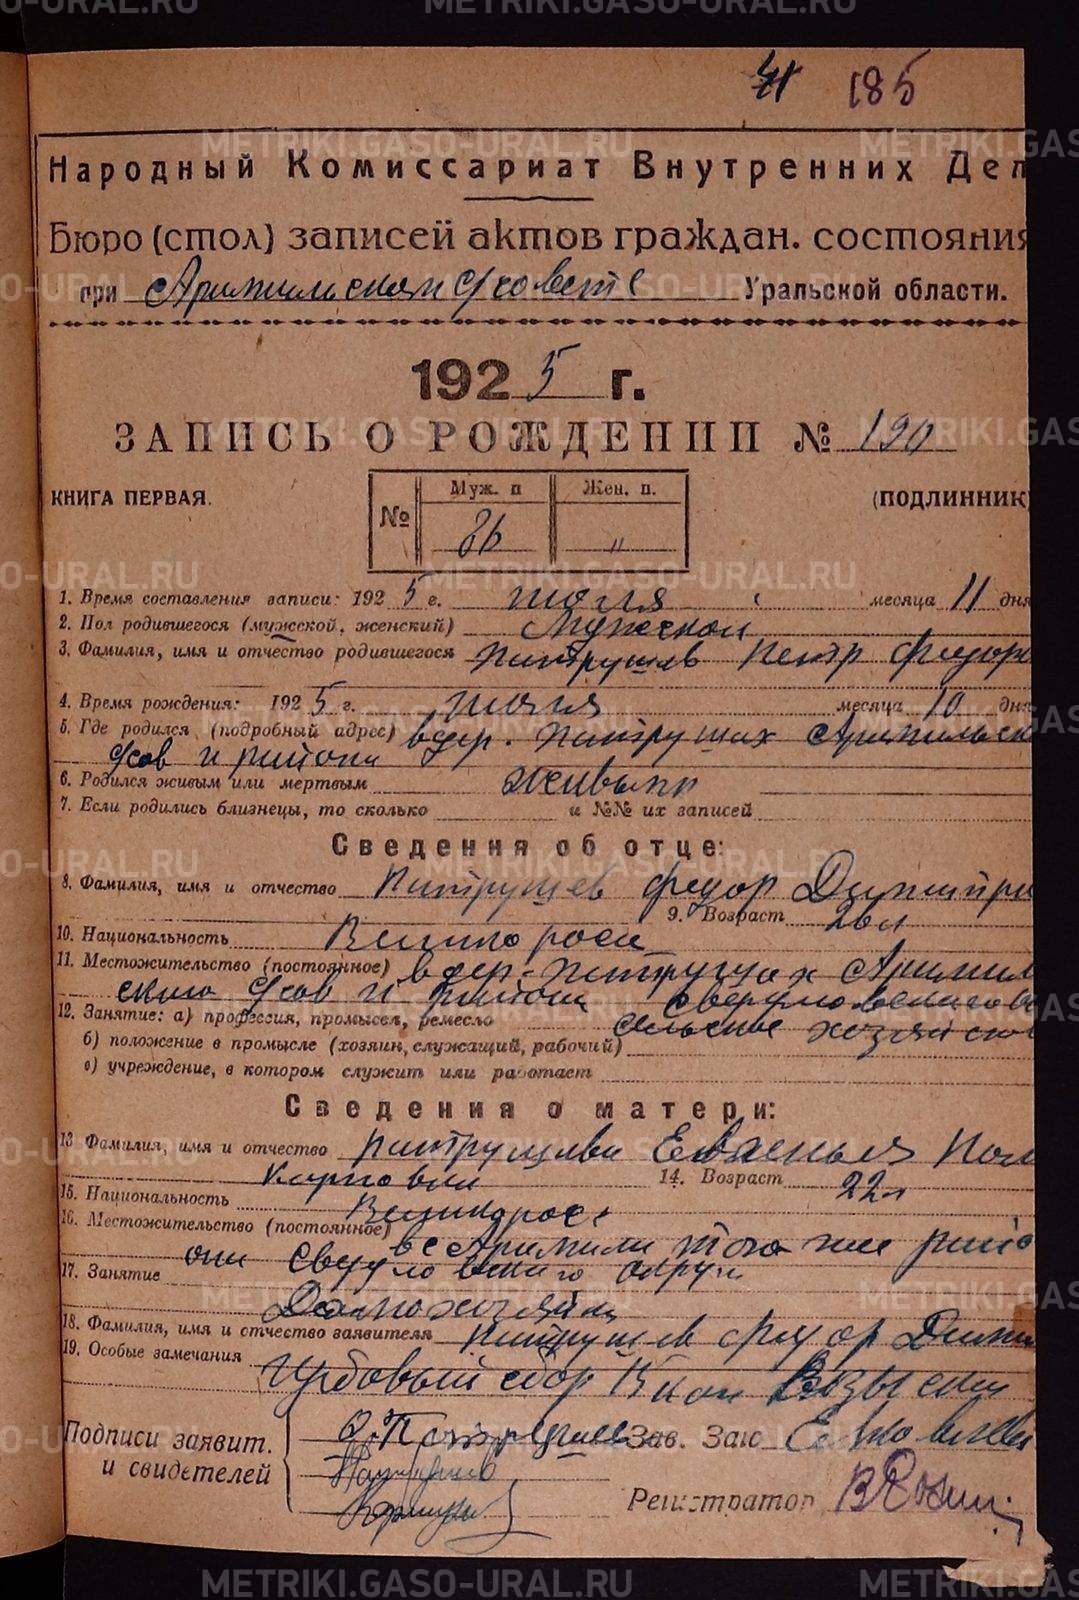 185
Народный Комиссариат Внутренних Дел
Бюро (стол) записей актов граждан. состояния
при Арамильском с/совете Уральской области.
1925 г.
ЗАПИСЬ О РОЖДЕНИИ № 190
КНИГА ПЕРВАЯ. (ПОДЛИННИК)
№ Муж. п Жен. п.
86 "
1. Время составления записи: 1925 г. июля месяца 11 дня
2. Пол родившегося (мужской, женский) Мужской
3. Фамилия, имя и отчество родившегося Патрушев Петр Федоро
4. Время рождения: 1925 г. июля месяца 10 дня
5. Где родился (подробный адрес) в дер. Патрушах Арамильск
с/сов и района
6. Родился живым или мертвым живым
7. Если родились близнецы, то сколько и №№ их записей
Сведения об отце:
8. Фамилия, имя и отчество Патрушев Федор Димитри
9. Возраст 26 л
10. Национальность Великоросс
11. Местожительство (постоянное) в дер. Патрушах Арамил
ского с/сов и района Свердловского
12. Занятие: а) профессия, промысел, ремесло сельское хозяйство
б) положение в промысле (хозяин, служащий, рабочий)
в) учреждение, в котором служит или работает
Сведения о матери:
13 Фамилия, имя и отчество Патрушева Евгенья
14. Возраст 22 л
15. Национальность Великоросс
16. Местожительство (постоянное) в с Арамили того же райо
она Свердловского округа
17. Занятие Домохозяйка
18. Фамилия, имя и отчество заявителя Патрушев Федор Дими
19. Особые замечания Гербовый сбор 15 коп Взыскан
Подписи заявит. и свидетелей
Ф. Патрушев Зав. Загс
Патрушев
Регистратор
METRIKI.GASO-URAL.RU